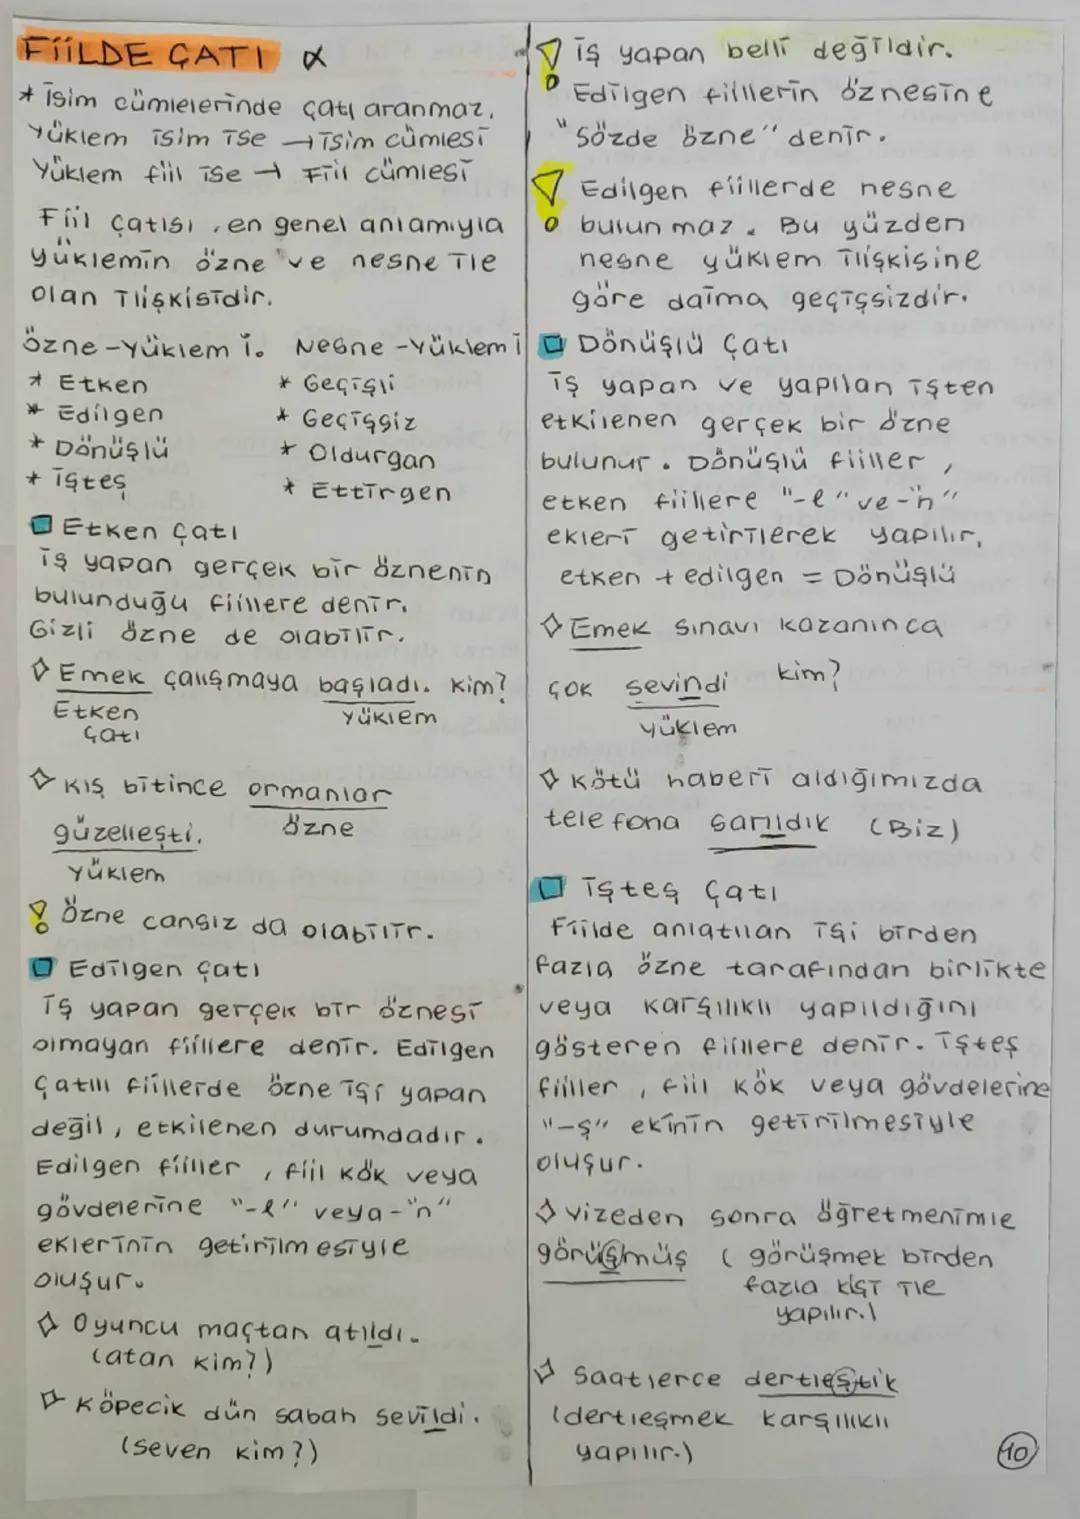 FİİLDE ÇATI α
* İsim cümlelerinde çatı aranmaz.
Yüklem isim ise → isim cümlesi
Yüklem fiil ise → Fiil cümlesi
Fiil çatısı, en genel anlamıyla
yüklemin özne ve nesne ile
olan ilişkisidir.
Özne-Yüklem i. Nesne-Yüklem i
* Etken * Geçişli
* Edilgen * Geçişsiz
* Dönüşlü * Oldurgan
* işteş * Ettirgen
Etken çatı
iş yapan gerçek bir öznenin
bulunduğu fiillere denir.
Gizli özne de olabilir.
Emek çalışmaya başladı. Kim?
Etken yüklem
çatı
Kış bitince ormanlar
özne
güzelleşti.
yüklem
Özne cansız da olabilir.
Edilgen çatı
iş yapan gerçek bir öznesi
olmayan fiillere denir. Edilgen
çatılı fiillerde özne işi yapan
değil, etkilenen durumdadır.
Edilgen fiiller, fiil kök veya
gövdelerine "-l" veya -"n"
eklerinin getirilmesiyle
oluşur.
Oyuncu maçtan atıldı.
(atan kim?)
Köpecik dün sabah sevildi.
(seven kim?)
iş yapan belli değildir.
Edilgen fiillerin öznesine
"Sözde özne" denir.
Edilgen fiillerde nesne
bulunmaz. Bu yüzden
nesne yüklem ilişkisine
göre daima geçişsizdir.
Dönüşlü Çatı
iş yapan ve yapılan işten
etkilenen gerçek bir özne
bulunur. Dönüşlü fiiller,
etken fiillere "-l" ve -"n"
ekleri getirilerek yapılır.
etken + edilgen = Dönüşlü
Emek sınavı kazanınca
çok sevindi kim?
yüklem
Kötü haberi aldığımızda
telefona sarıldık (Biz)
işteş Çatı
Fiilde anlatılan işi birden
fazla özne tarafından birlikte
veya karşılıklı yapıldığını
gösteren fiillere denir. işteş
fiiller, fiil kök veya gövdelerine
"-ş" ekinin getirilmesiyle
oluşur.
Vizeden sonra öğretmenimle
görüşmüş (görüşmek birden
fazla kişi ile
yapılır.)
Saatlerce dertleştik
(dertleşmek karşılıklı
yapılır.)
10